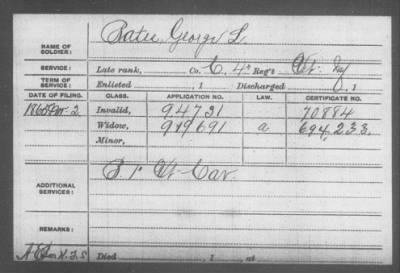 NAME OF SOLDIER: George L.
SERVICE: Late rank, Co. C, 4 Reg't Vt. Inf
TERM OF SERVICE: Enlisted , 1 Discharged , 1
DATE OF FILING. CLASS. APPLICATION NO. LAW. CERTIFICATE NO.
Invalid, 70884
Widow, 949691 a 694,233
Minor,
ADDITIONAL SERVICES: Vt Cav.
REMARKS:
Died , 1 , at